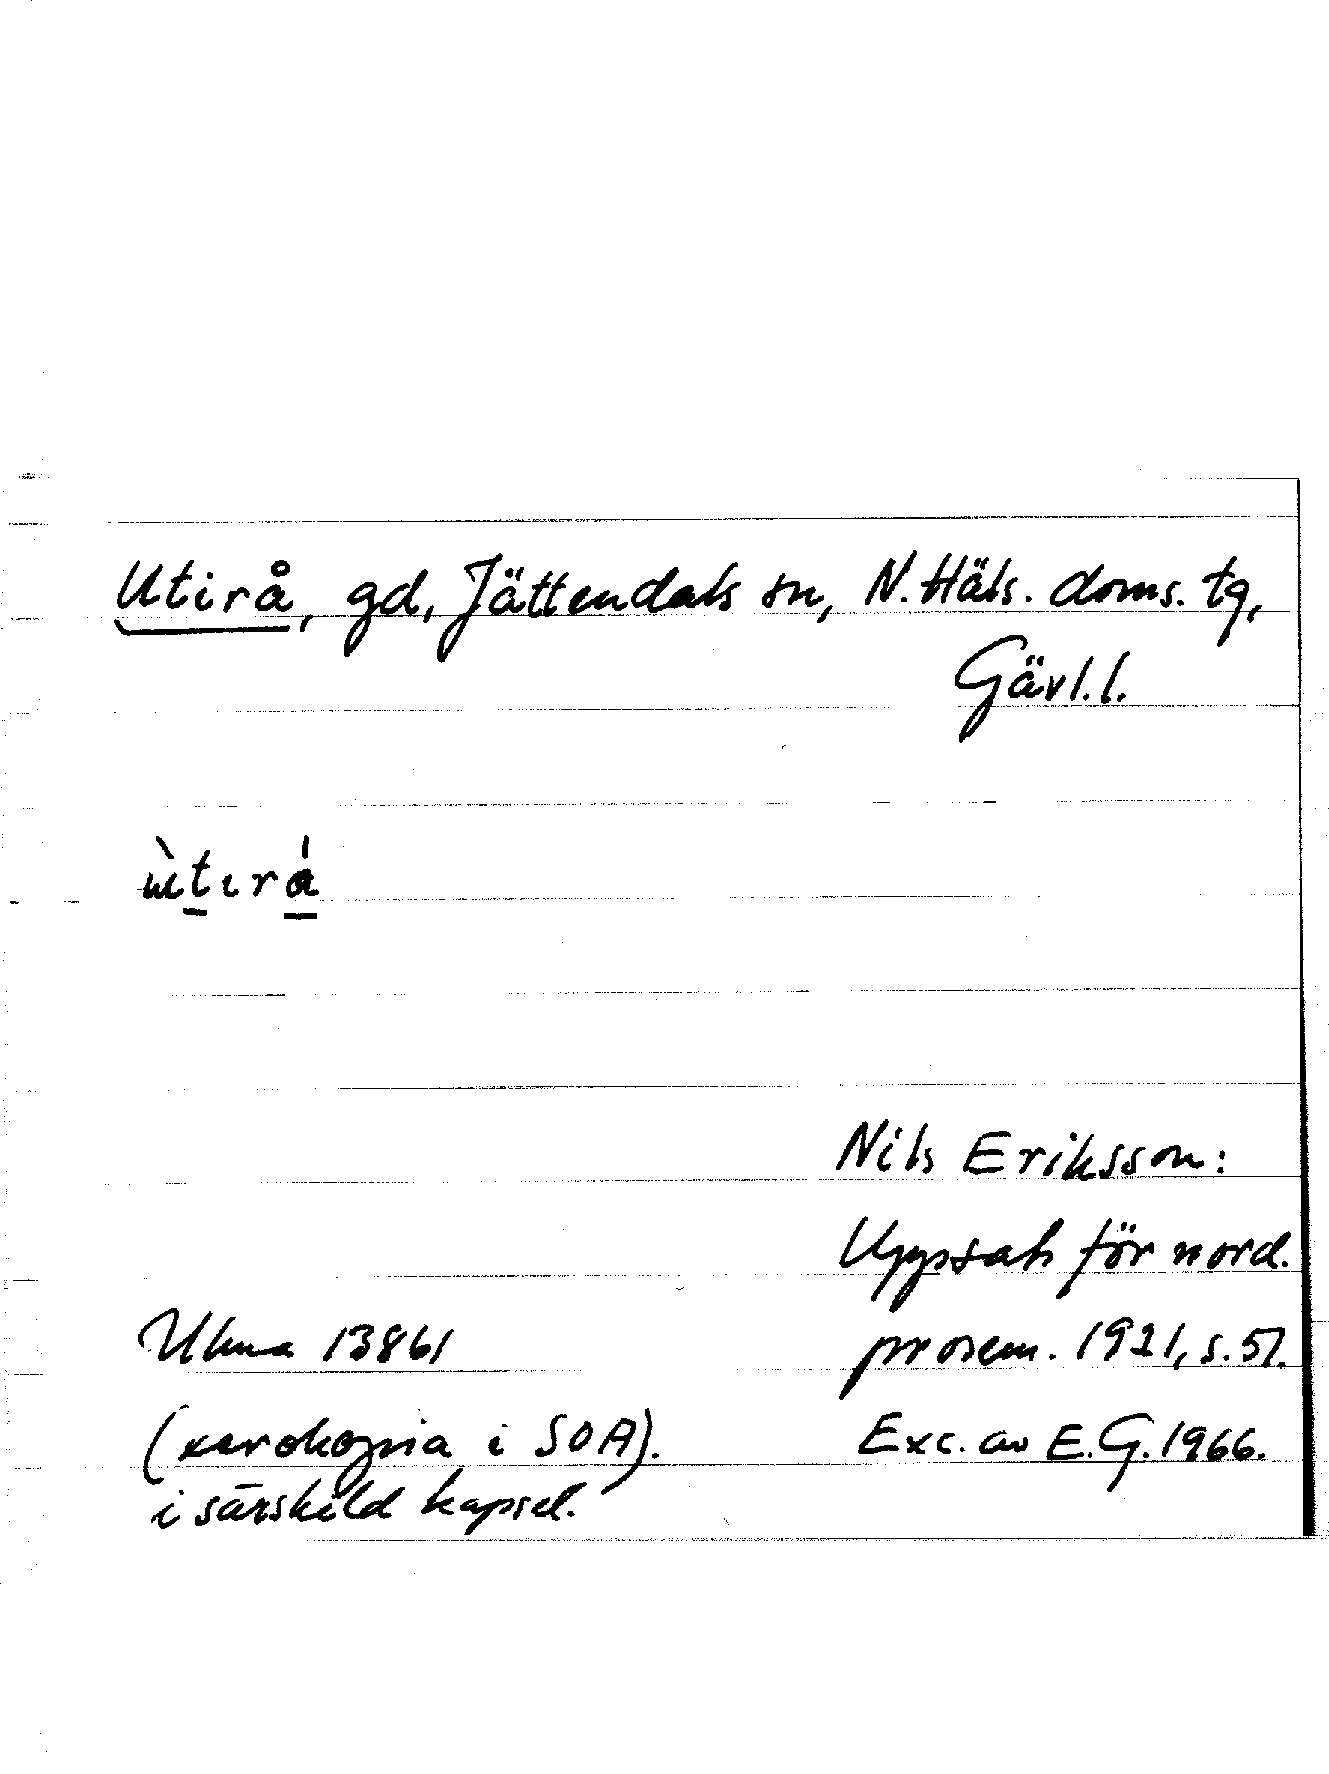 Utirå, gd, Jättendals sn, N. Häls. doms. tg,
Gävl. l.
ùtɩrá
Nils Eriksson:
Uppsats för nord.
Ulma 13861
prosem. 1921, s. 57.
(xerokopia i SOA).
Exc. av E. G. 1966.
i särskild kapsel.